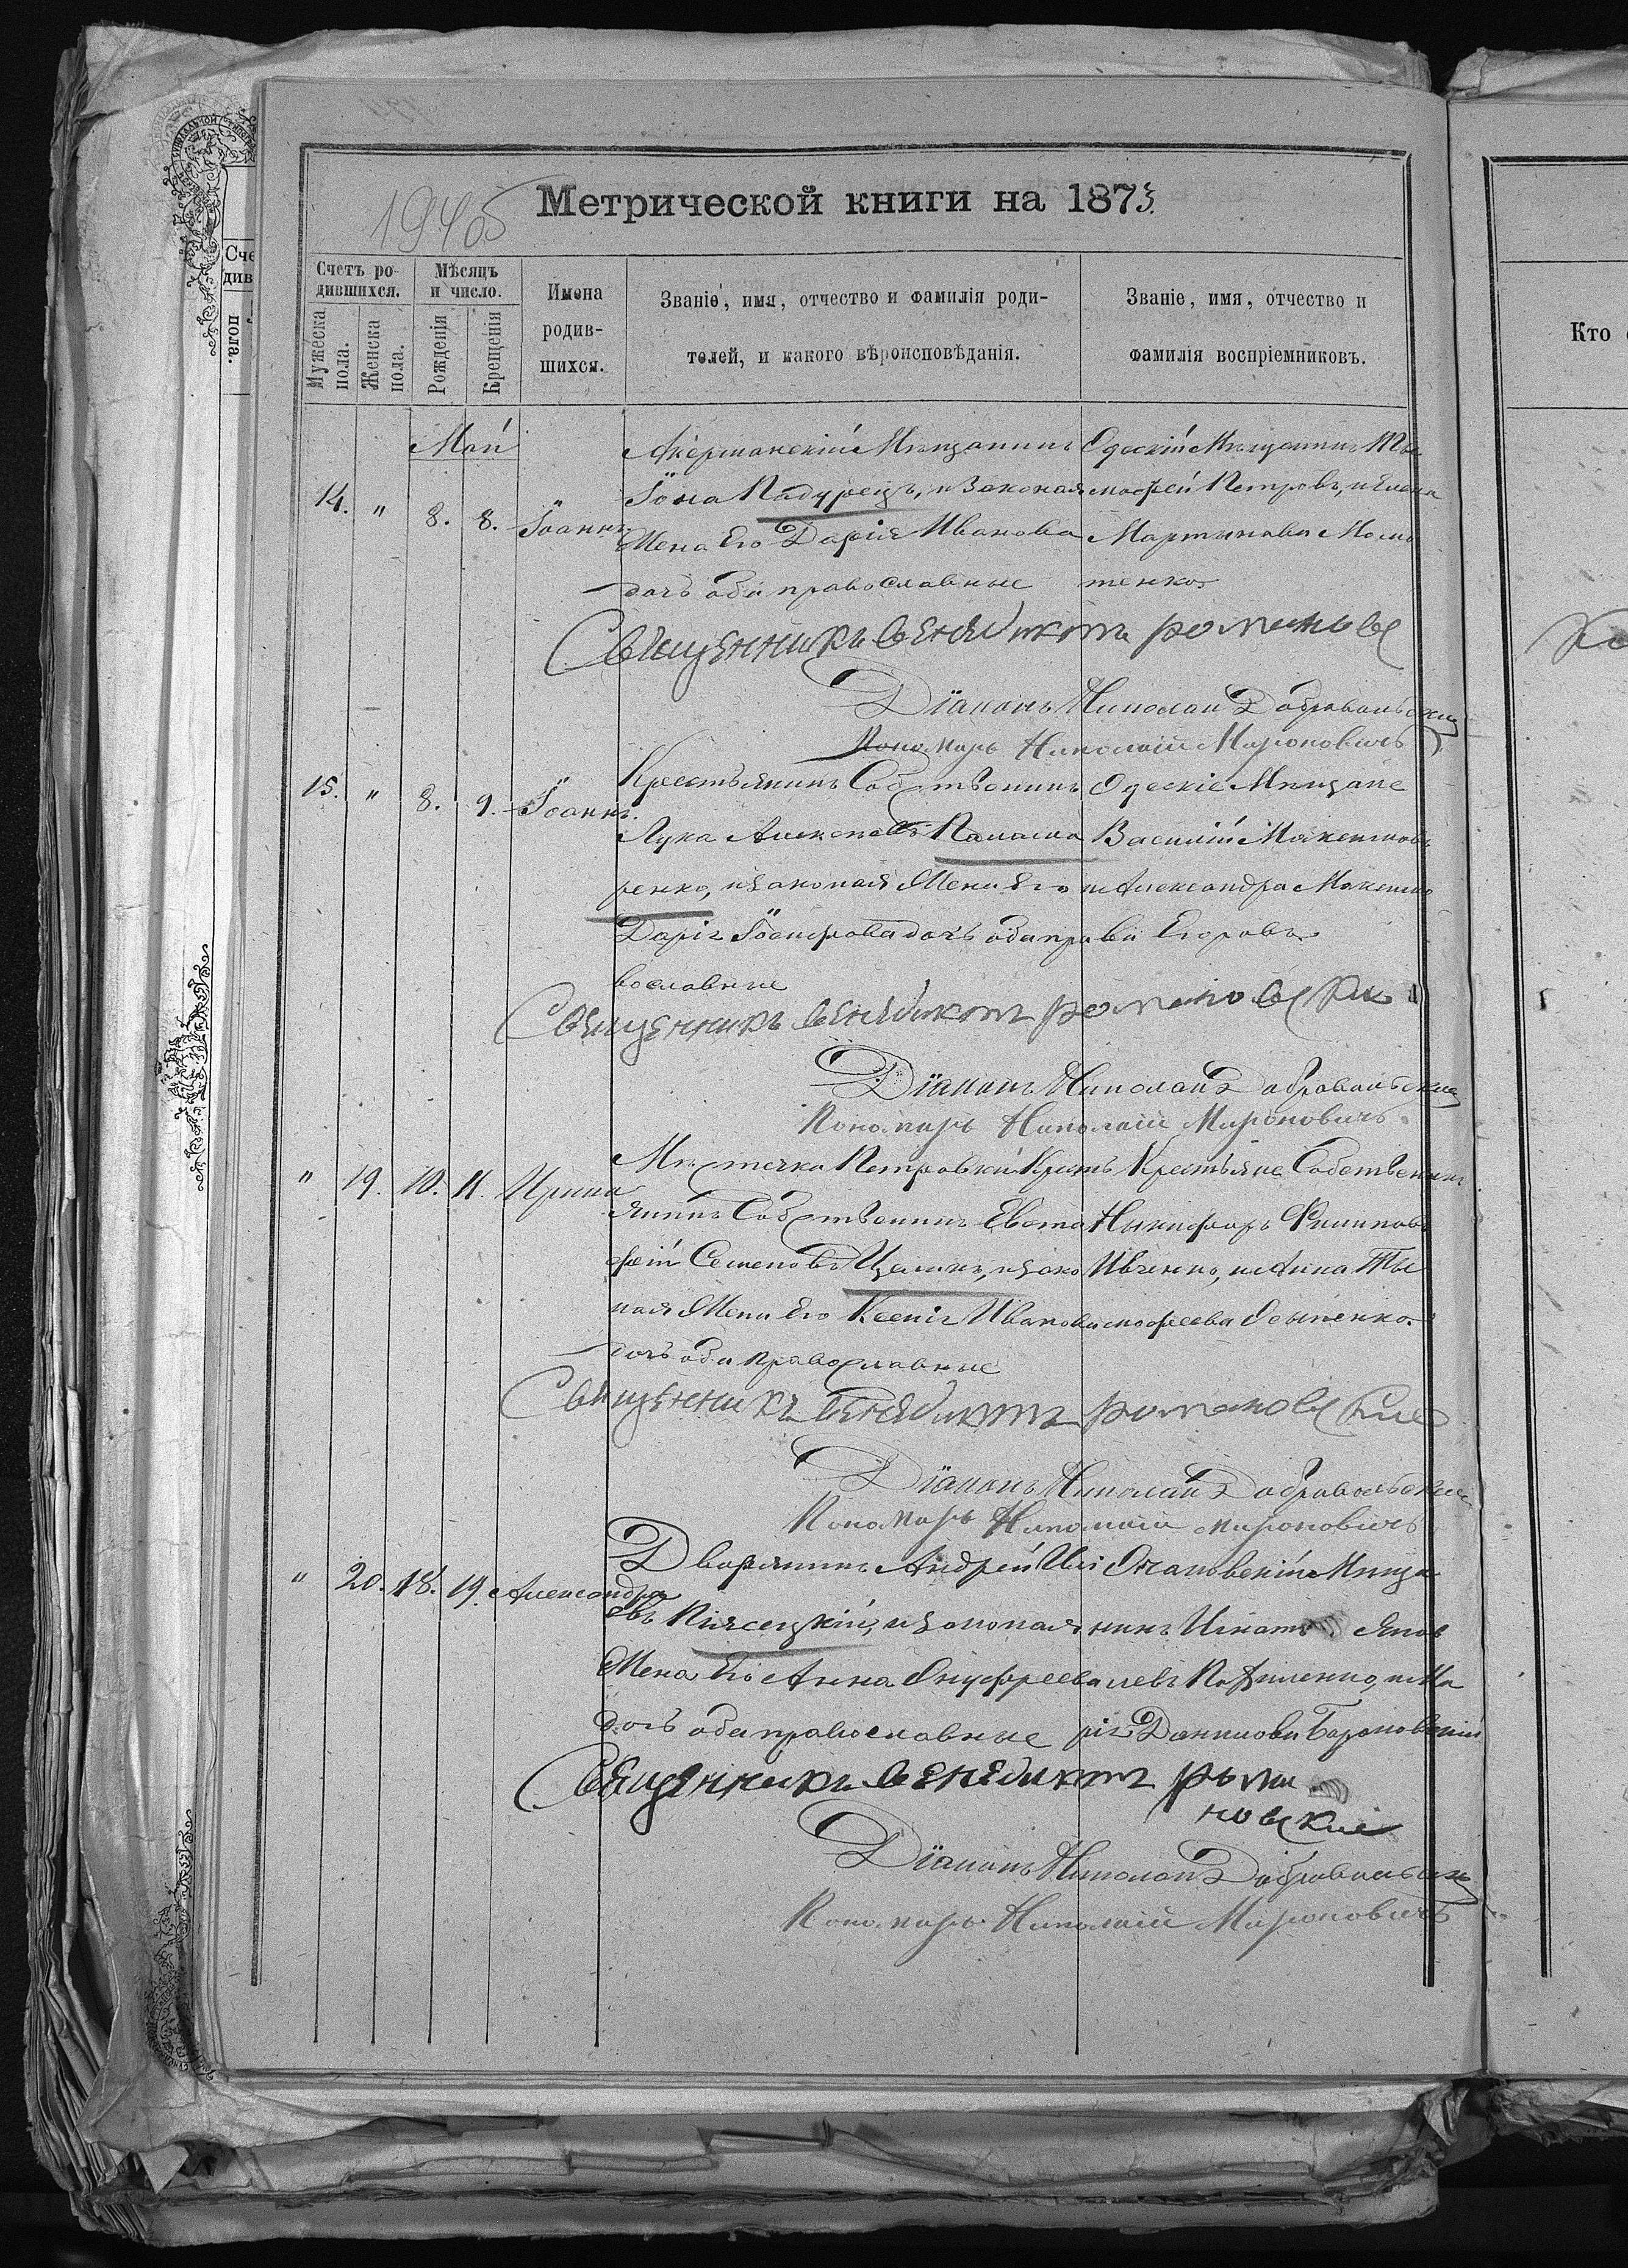 1940б
Метрической книги на 1873.
Счетъ ро-
дившихся.
Мужеска пола.
Женска пола.
Мѣсяцъ
и число.
Рожденія
Крещенія
Имена
родив-
шихся.
Званіе, имя, отчество и фамилія роди-
телей, и какого вѣроисповѣданія.
Званіе, имя, отчество и
фамилія воспріемниковъ.
Кто
Сче
див
пола.
Май
14. " 8. 8. Іоаннъ.
Акерманскій Мѣщанинъ
Іона Падурецъ, и законая
Жена Его Дарія Иванова
дочь оба православные
Одескій Мѣщанинъ Ты
мофей Петровъ, и Елена
Мартынова
тенко
Священникъ Венедиктъ Романовс
Діаконъ Николай Добровольскій
Пономарь Николай Мироновичъ
15. " 8. 9. Іоаннъ.
Крестьянинъ Собственикъ
Лука Алексѣевъ Палама
ренко, и законая Жена Его
Дарія Іосифова дочь оба пра
вославные
Одескіе Мѣщане
Василій Макеимовъ
и Александра Макеимо
ва Егоровъ
Священникъ Венедиктъ Романовски
Діаконъ Николай Добровольскій
Пономарь Николай Мироновичъ
" 19. 10. 11. Ирина
Мѣстечка Петровки Крест
янинъ Собственикъ Евста
фей Семеновъ Цимохъ, и зако
ная Жена Его Ксенія Иванова
дочь оба православные
Крестьяне Собственики
Ныкифоръ Филиповъ
Ивченко, и Анна Ты
мофеева Осыпенко
Священникъ Венедиктъ Романовские
Діаконъ Николай Добровольскій
Пономарь Николай Мироновичъ
" 20. 18. 19. Александра
Дворянинъ Андрей Илі
евъ Піясецкій, и законая
Жена Его Анна Онуфреева
дочь оба православные
Очаковскій Мѣща
нинъ Игнатъ Яков
левъ Пафиленко, и Ма
рія Данилова Барановскій
Священникъ Венедиктъ Рома
новскіе
Діаконъ Николай Добровольскій
Пономарь Николай Мироновичъ